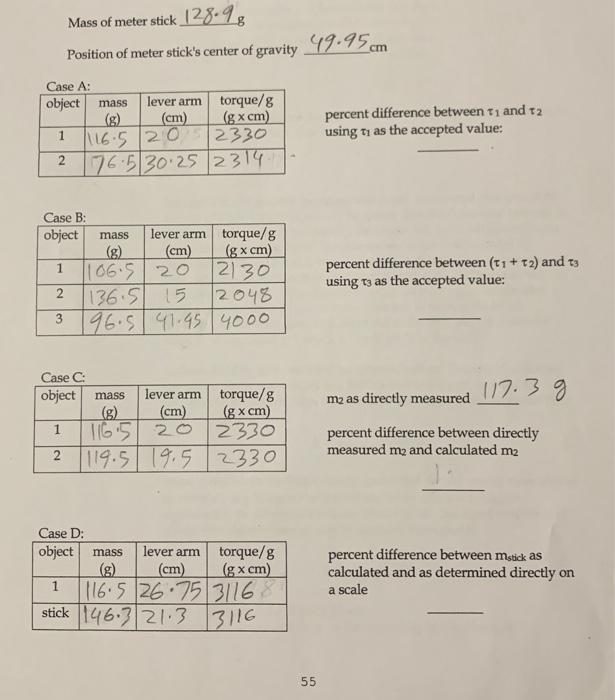 Mass of meter stick 128.9 g
Position of meter stick's center of gravity 49.95 cm
Case A:
object mass (g) lever arm (cm) torque/g (g x cm)
1 116.5 20 2330
2 76.5 30.25 2314
percent difference between τ1 and τ2
using τ1 as the accepted value:
Case B:
object mass (g) lever arm (cm) torque/g (g x cm)
1 106.5 20 2130
2 136.5 15 2048
3 96.5 41.45 4000
percent difference between (τ1 + τ2) and τ3
using τ3 as the accepted value:
Case C:
object mass (g) lever arm (cm) torque/g (g x cm)
1 116.5 20 2330
2 119.5 19.5 2330
m2 as directly measured 117.3 g
percent difference between directly
measured m2 and calculated m2
Case D:
object mass (g) lever arm (cm) torque/g (g x cm)
1 116.5 26.75 3116
stick 146.3 21.3 3116
percent difference between mstick as
calculated and as determined directly on
a scale
55